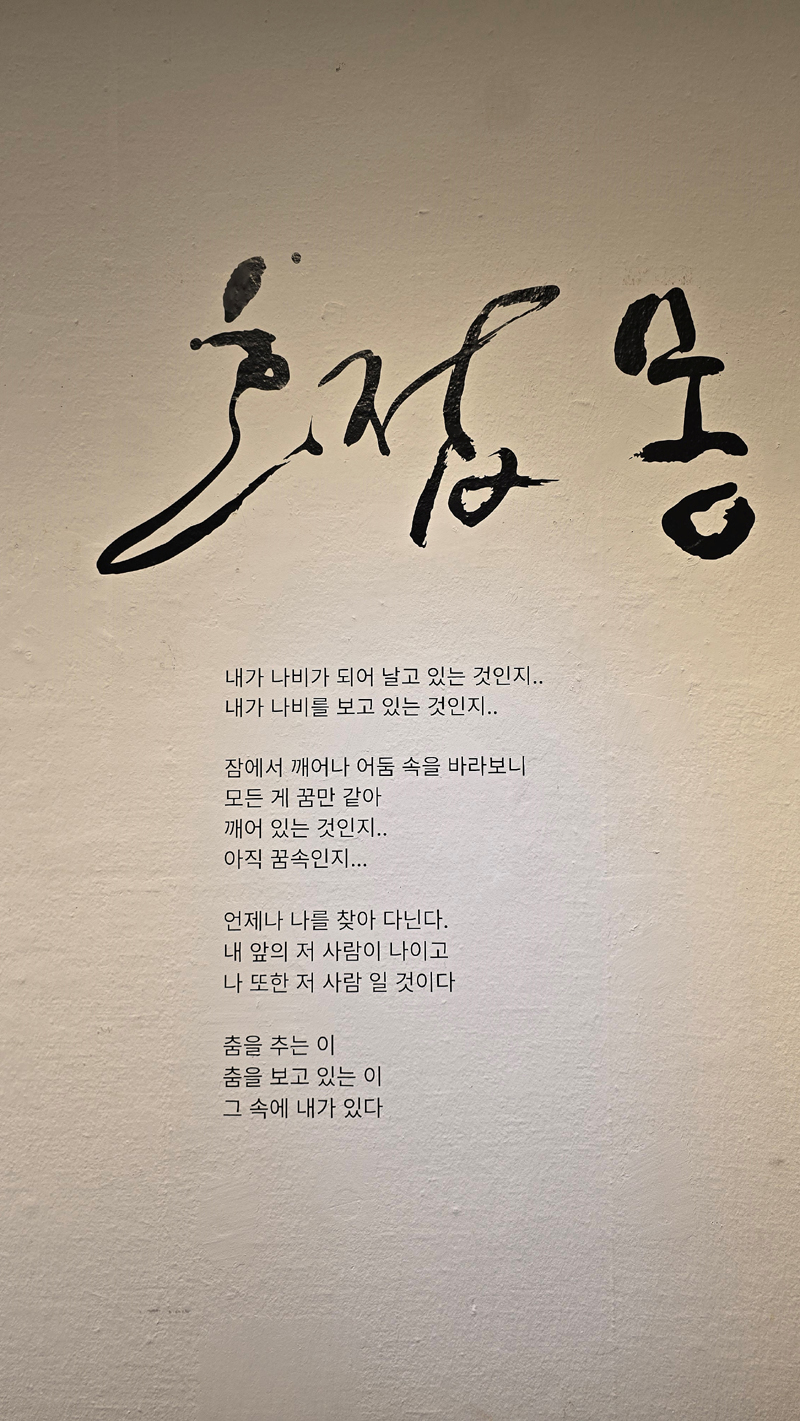 호접몽
내가 나비가 되어 날고 있는 것인지..
내가 나비를 보고 있는 것인지..
잠에서 깨어나 어둠 속을 바라보니
모든 게 꿈만 같아
깨어 있는 것인지..
아직 꿈속인지...
언제나 나를 찾아 다닌다.
내 앞의 저 사람이 나이고
나 또한 저 사람 일 것이다
춤을 추는 이
춤을 보고 있는 이
그 속에 내가 있다